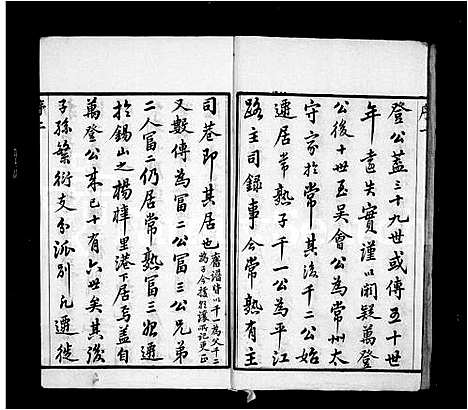 序一
登公蓋三十九世或傳五十世
年遠失實謹以闕疑萬登
公後十世至吳會公為常州太
守家於常其後千二公始
遷居常熟子千一公為平江
路主司錄事今常熟有主
司巷即其居也舊譜皆以千一為父千二為子今據
又數傳為冨二公冨三公兄弟
二人冨二仍居常熟冨三始遷
於錫山之楊樟里港下居焉蓋自
萬登公來已十有六世矣其後
子孫繁衍支分派別凡遷徙
序二